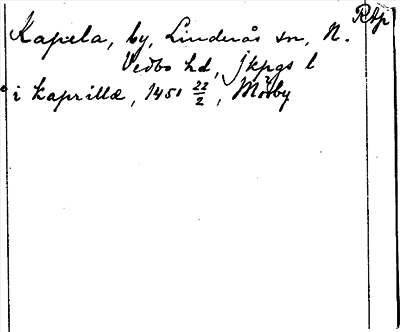 Rdp
Kapela, by, Linderås sn, N.
Vedbo hd, Jkpgs l
i kaprillæ, 1451 22/2, Mörby